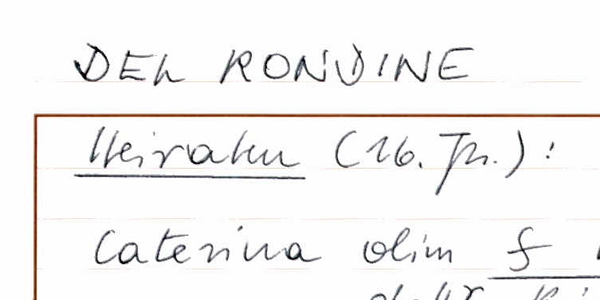 DEL RONDINE
Heiraten (16. Jh.):
Caterina olim f